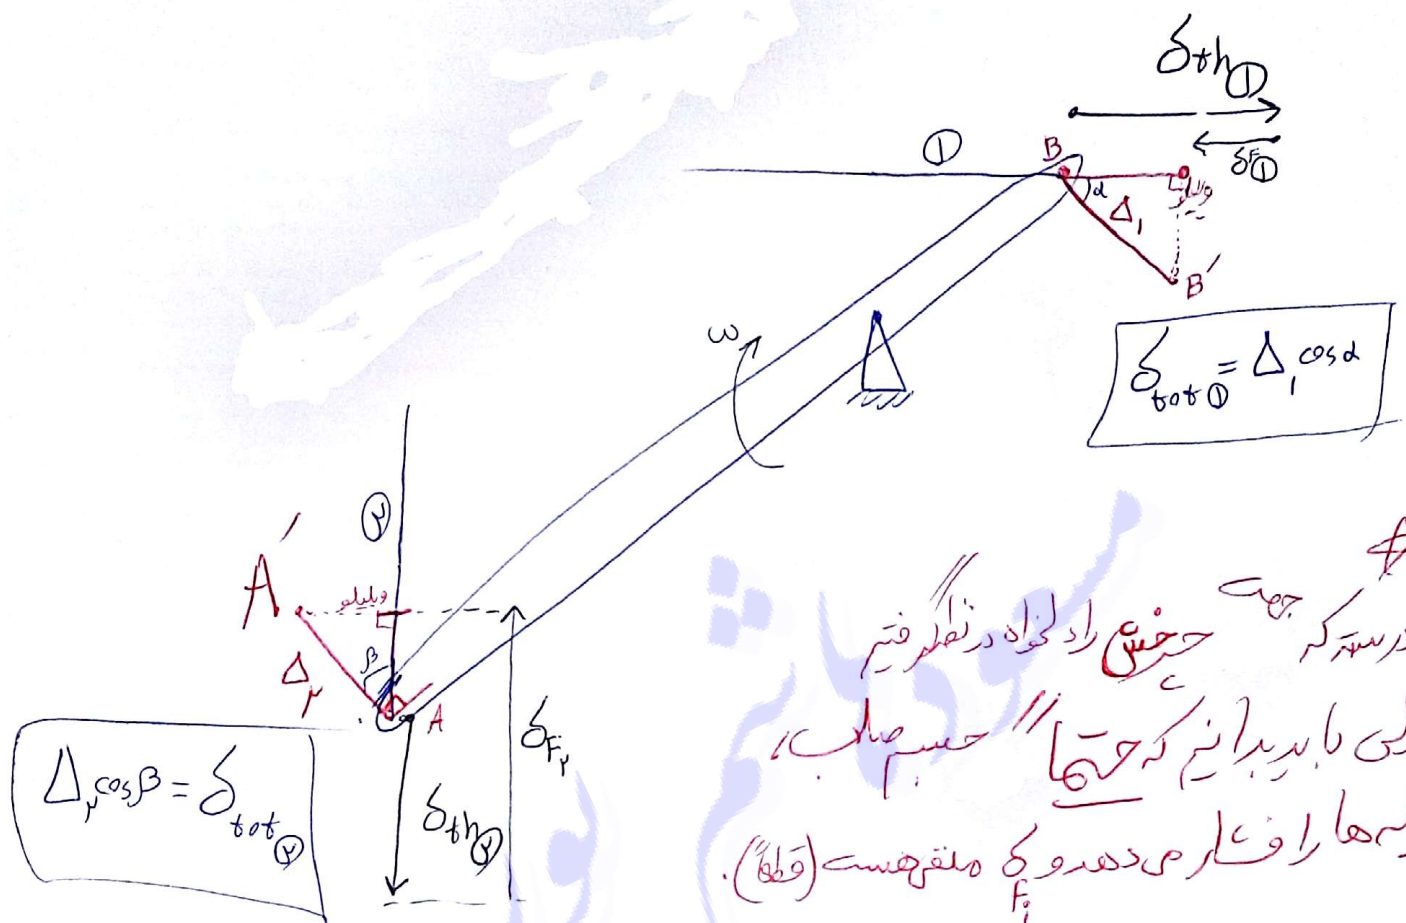 δth①
δF①
①
B
α
Δ₁
B′
ω
δtot① = Δ₁ cosα
②
A′
ویلیلو
β
Δ۲
A
δF۲
δth②
Δ۲ cosβ = δtot②
درسته که جهت چرخش را دلخواه در نظر گرفتیم
باید بدانیم که حتما جسم صلب،
ها را فشار می‌دهد و δFi منفی هست (قطعاً).